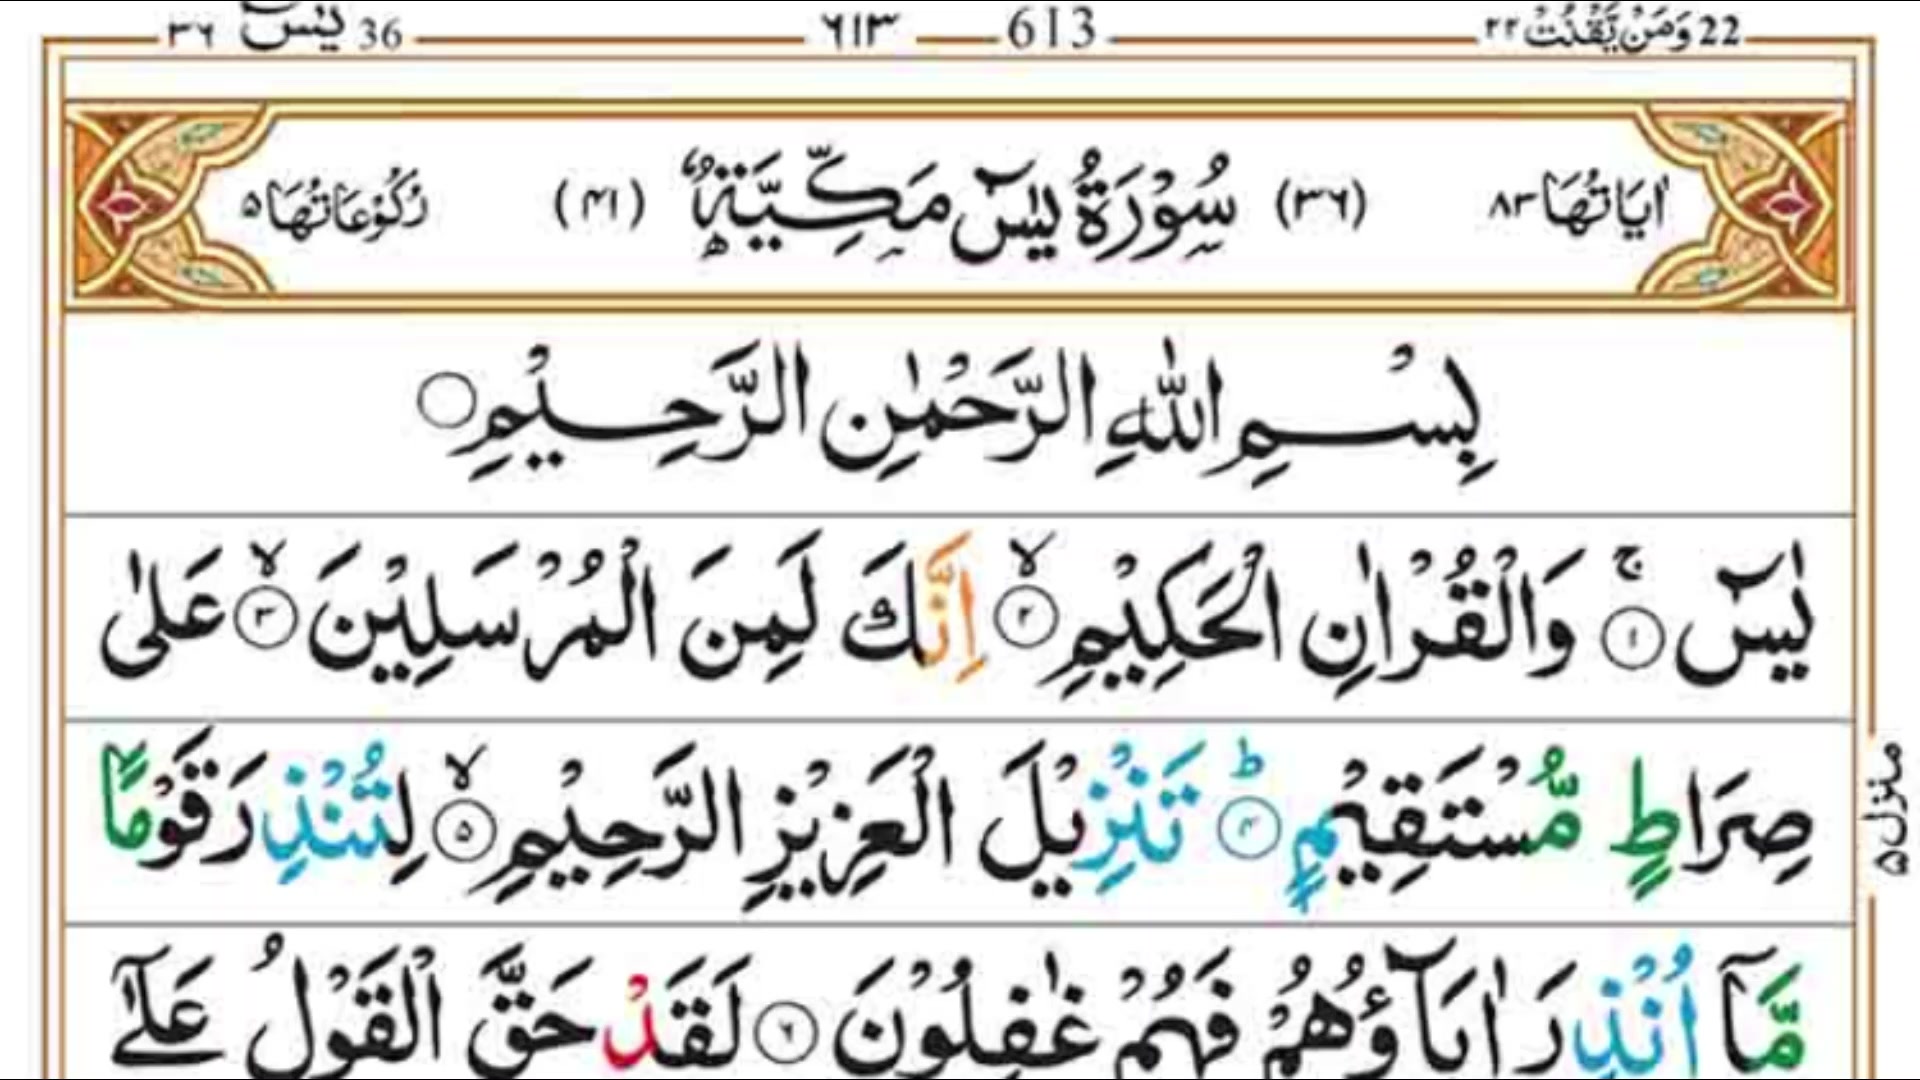 ۳۶ يٰسٓ 36 ۶۱۳ 613 وَمَنْ يَّقْنُتْ ۲۲ 22
اٰيَاتُهَا ۸۳ (۳۶) سُوْرَةُ يٰسٓ مَكِّيَّةٌ (۴۱) رُكُوْعَاتُهَا ۵
بِسْمِ اللّٰهِ الرَّحْمٰنِ الرَّحِيْمِ
يٰسٓ ۚ ۱ وَالْقُرْاٰنِ الْحَكِيْمِ ۙ ۲ اِنَّكَ لَمِنَ الْمُرْسَلِيْنَ ۙ ۳ عَلٰى
صِرَاطٍ مُّسْتَقِيْمٍ ؕ ۴ تَنْزِيْلَ الْعَزِيْزِ الرَّحِيْمِ ۙ ۵ لِتُنْذِرَ قَوْمًا
مَّاۤ اُنْذِرَ اٰبَآؤُهُمْ فَهُمْ غٰفِلُوْنَ ۶ لَقَدْ حَقَّ الْقَوْلُ عَلٰٓى
منزل ۵